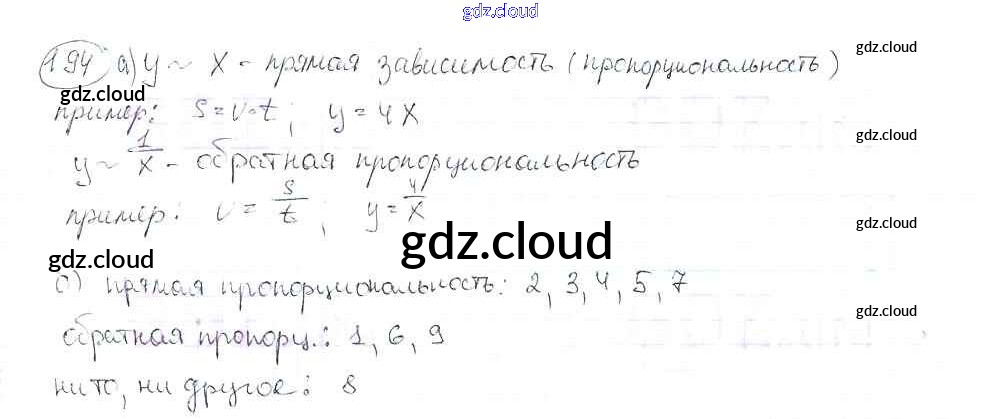 gdz.cloud
194 а) y ~ x - прямая зависимость (пропорциональность)
gdz.cloud
gdz.cloud
пример: S=v·t; y=4x
gdz.cloud
y ~ 1/x - обратная пропорциональность
пример: v = s/t; y = 4/x
gdz.cloud
gdz.cloud
gdz.cloud
с) прямая пропорциональность: 2, 3, 4, 5, 7
gdz.cloud
обратная пропорц.: 1, 6, 9
ни то, ни другое: 8